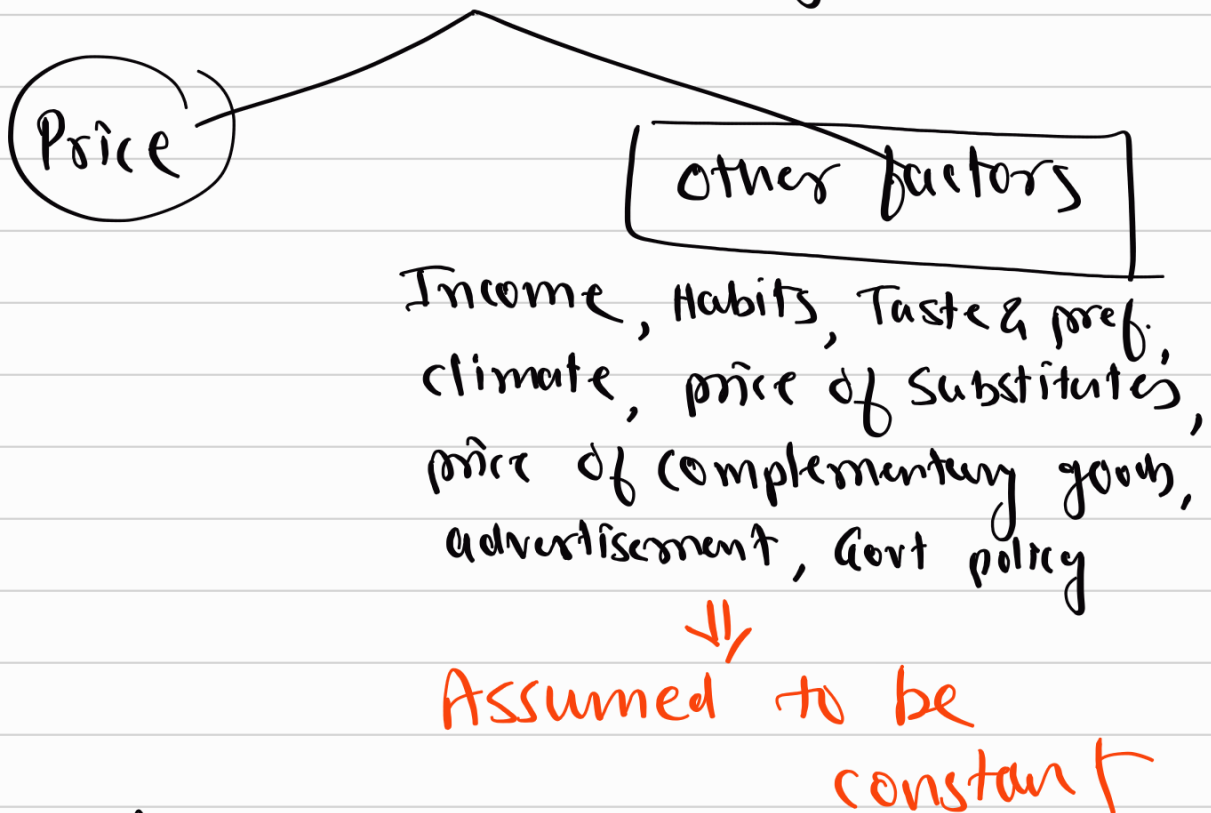 Price
Other factors
Income, Habits, Taste & pref.,
climate, price of substitutes,
price of complementary goods,
advertisement, Govt policy
⇓
Assumed to be
constant